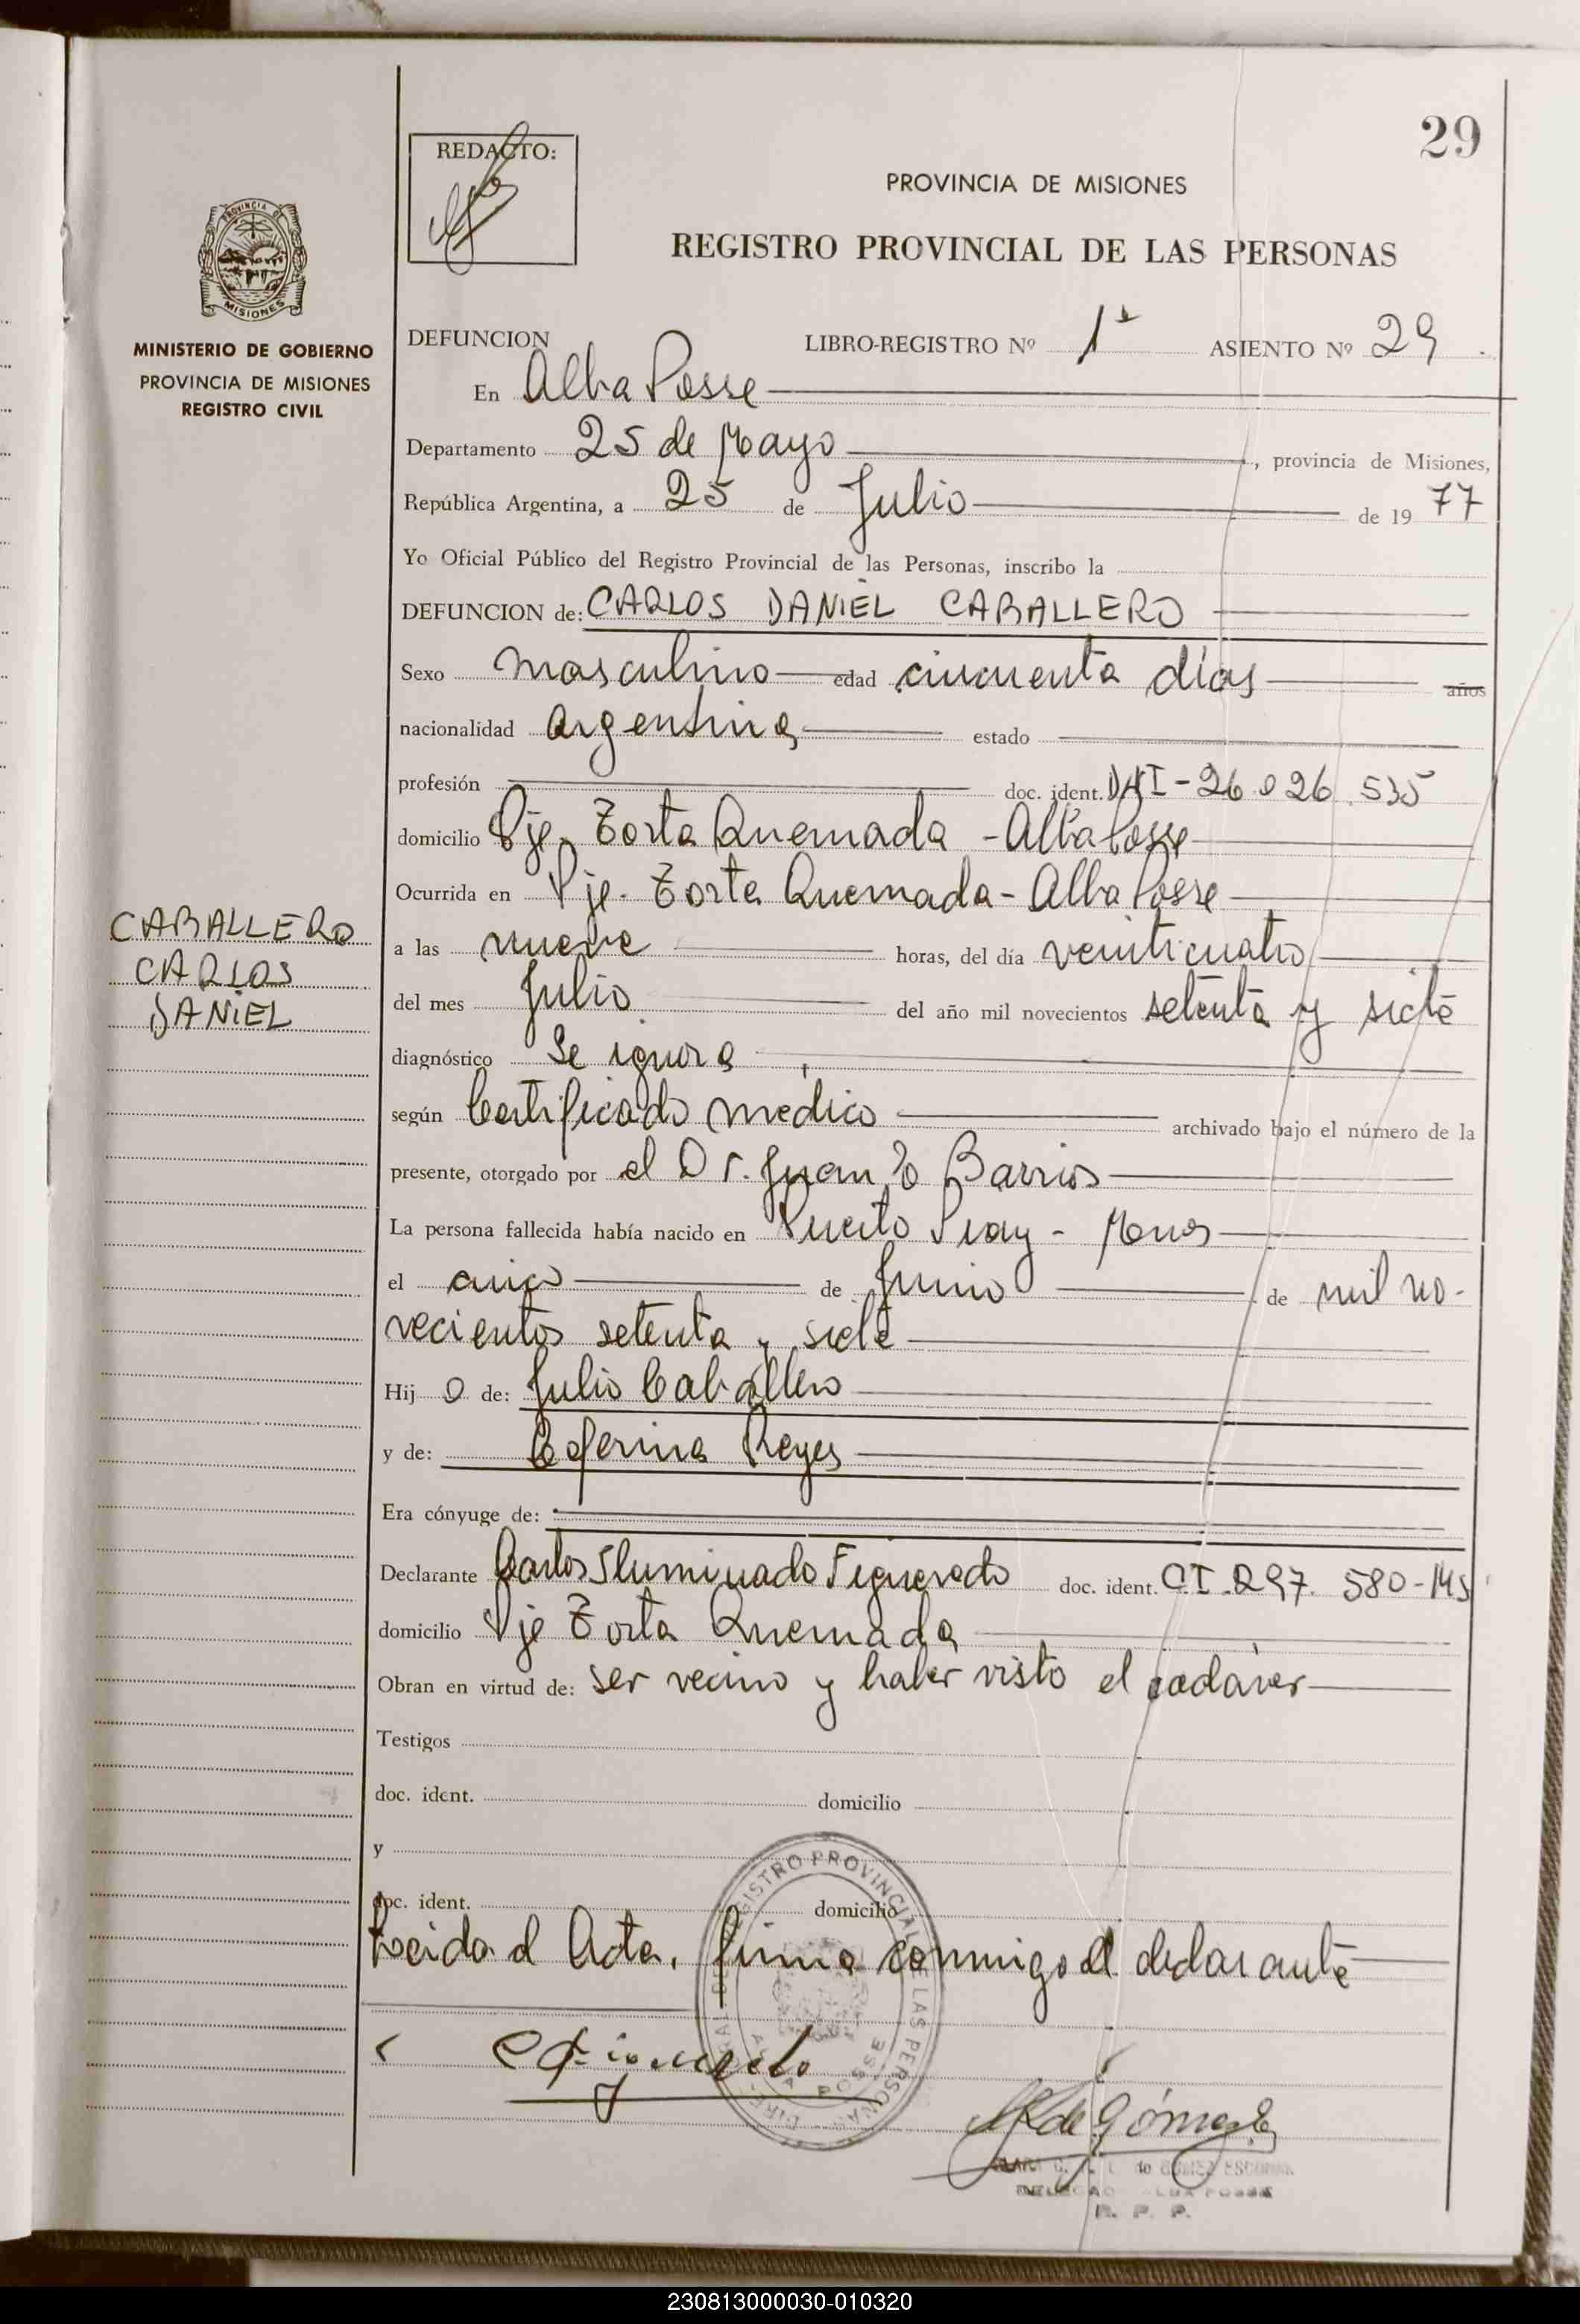 29
REDACTO:
PROVINCIA DE MISIONES
REGISTRO PROVINCIAL DE LAS PERSONAS
PROVINCIA DE
MISIONES
MINISTERIO DE GOBIERNO
PROVINCIA DE MISIONES
REGISTRO CIVIL
DEFUNCION LIBRO-REGISTRO Nº 1º ASIENTO Nº 29
En Alba Posse
Departamento 25 de Mayo, provincia de Misiones,
República Argentina, a 25 de Julio de 19 77
Yo Oficial Público del Registro Provincial de las Personas, inscribo la
DEFUNCION de: CARLOS DANIEL CABALLERO
Sexo masculino edad cincuenta días años
nacionalidad argentina estado
profesión doc. ident. DNI-26.026.535
domicilio Pje. Torta Quemada - Alba Posse
Ocurrida en Pje. Torta Quemada - Alba Posse
CABALLERO
CARLOS
DANIEL
a las nueve horas, del día veinticuatro
del mes Julio del año mil novecientos setenta y siete
diagnóstico Se ignora
según Certificado médico archivado bajo el número de la
presente, otorgado por el Dr. Juan Barrios
La persona fallecida había nacido en Puerto Piray - Mnes
el cinco de Junio de mil no-
vecientos setenta y siete
Hij o de: Julio Caballero
y de: Ceferina Reyes
Era cónyuge de:
Declarante Carlos Iluminado Figueredo doc. ident. CI 297.580-Ms
domicilio Pje Torta Quemada
Obran en virtud de: ser vecino y haber visto el cadáver
Testigos
doc. ident. domicilio
y
doc. ident. domicilio
Leída el Acta, firma conmigo el declarante
REGISTRO PROVINCIAL DE LAS PERSONAS
ALBA POSSE
C Figueredo
de Gómez
de GOMEZ
R. P. P.
230813000030-010320